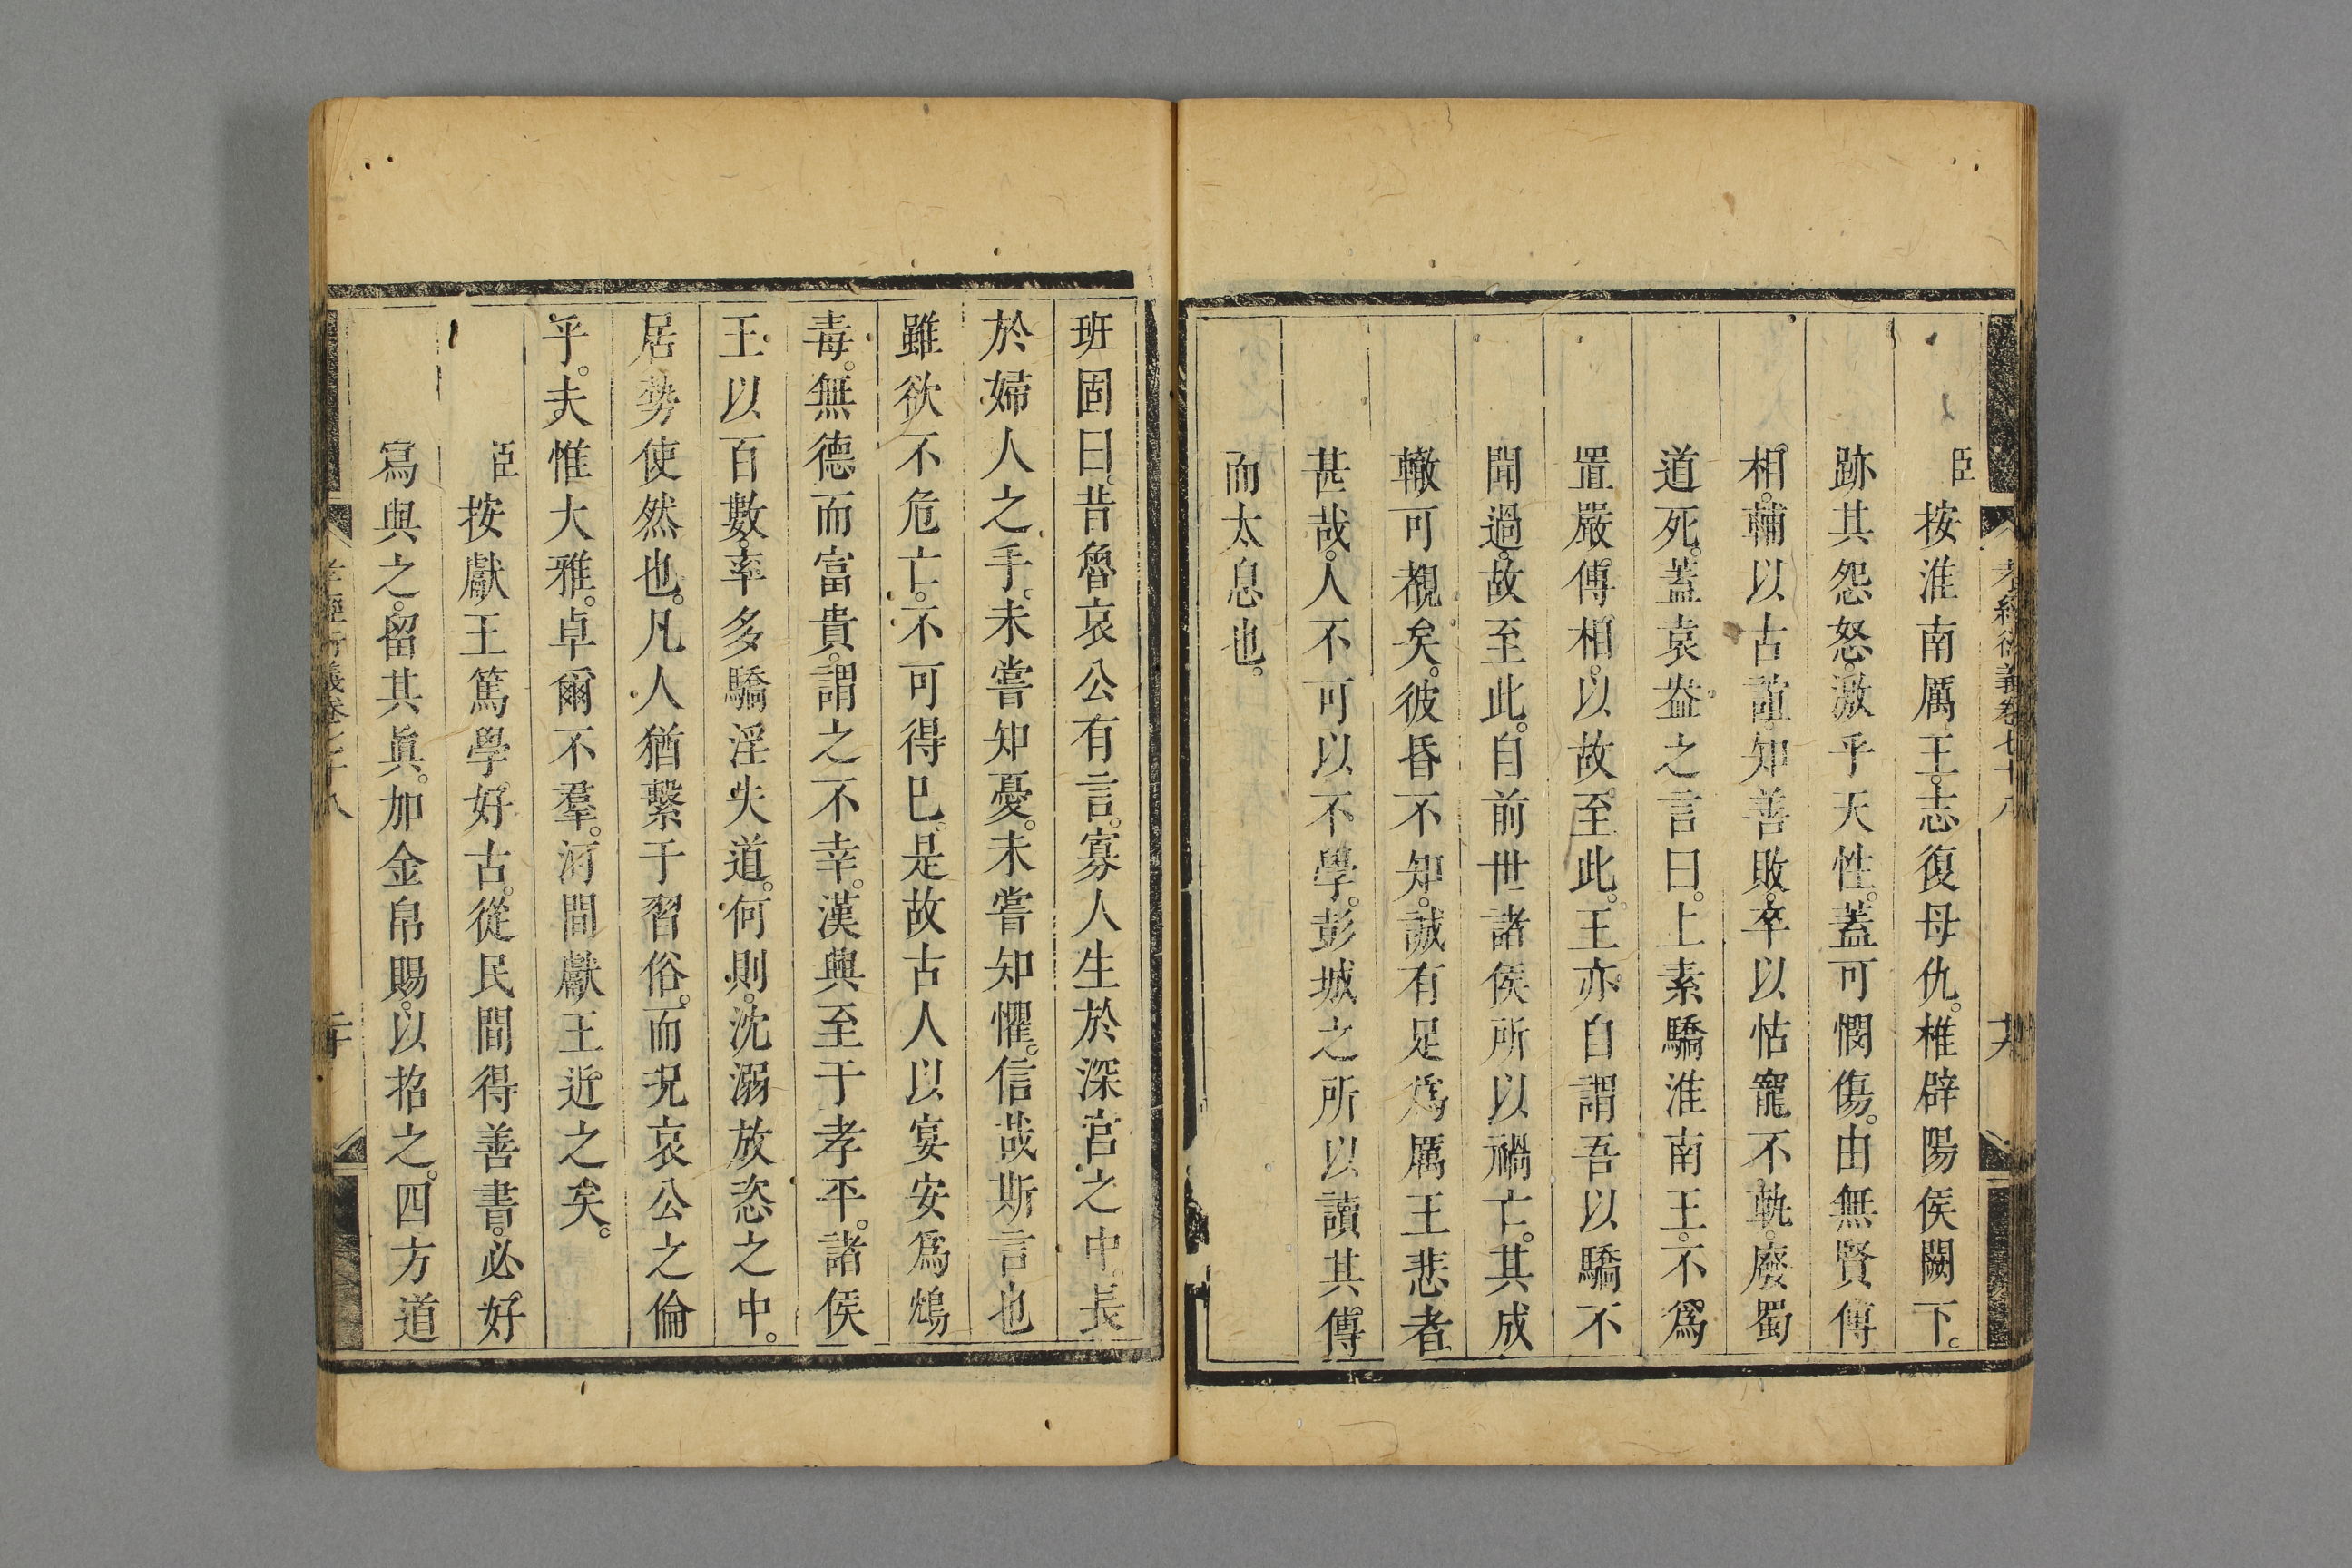 孝經衍義卷七十八
臣按淮南厲王。志復母仇。椎辟陽侯闕下。
跡其怨怒。激乎天性。蓋可憫傷。由無賢傅
相。輔以古誼。知善敗。卒以怙寵不軌。廢蜀
道死。蓋袁盎之言曰。上素驕淮南王。不爲
置嚴傅相。以故至此。王亦自謂吾以驕不
聞過。故至此。自前世諸侯所以禍亡。其成
轍可覩矣。彼昏不知。誠有足爲厲王悲者
甚哉。人不可以不學。彭城之所以讀其傳
而太息也。
班固曰。昔魯哀公有言。寡人生於深宮之中。長
於婦人之手。未嘗知憂。未嘗知懼。信哉斯言也
雖欲不危亡。不可得已。是故古人以宴安爲鴆
毒。無德而富貴。謂之不幸。漢興至于孝平。諸侯
王以百數。率多驕淫失道。何則。沈溺放恣之中。
居勢使然也。凡人猶繫于習俗。而況哀公之倫
乎。夫惟大雅。卓爾不羣。河間獻王近之矣。
臣按獻王篤學好古。從民間得善書。必好
寫與之。留其眞。加金帛賜。以招之。四方道
孝經衍義卷七十八